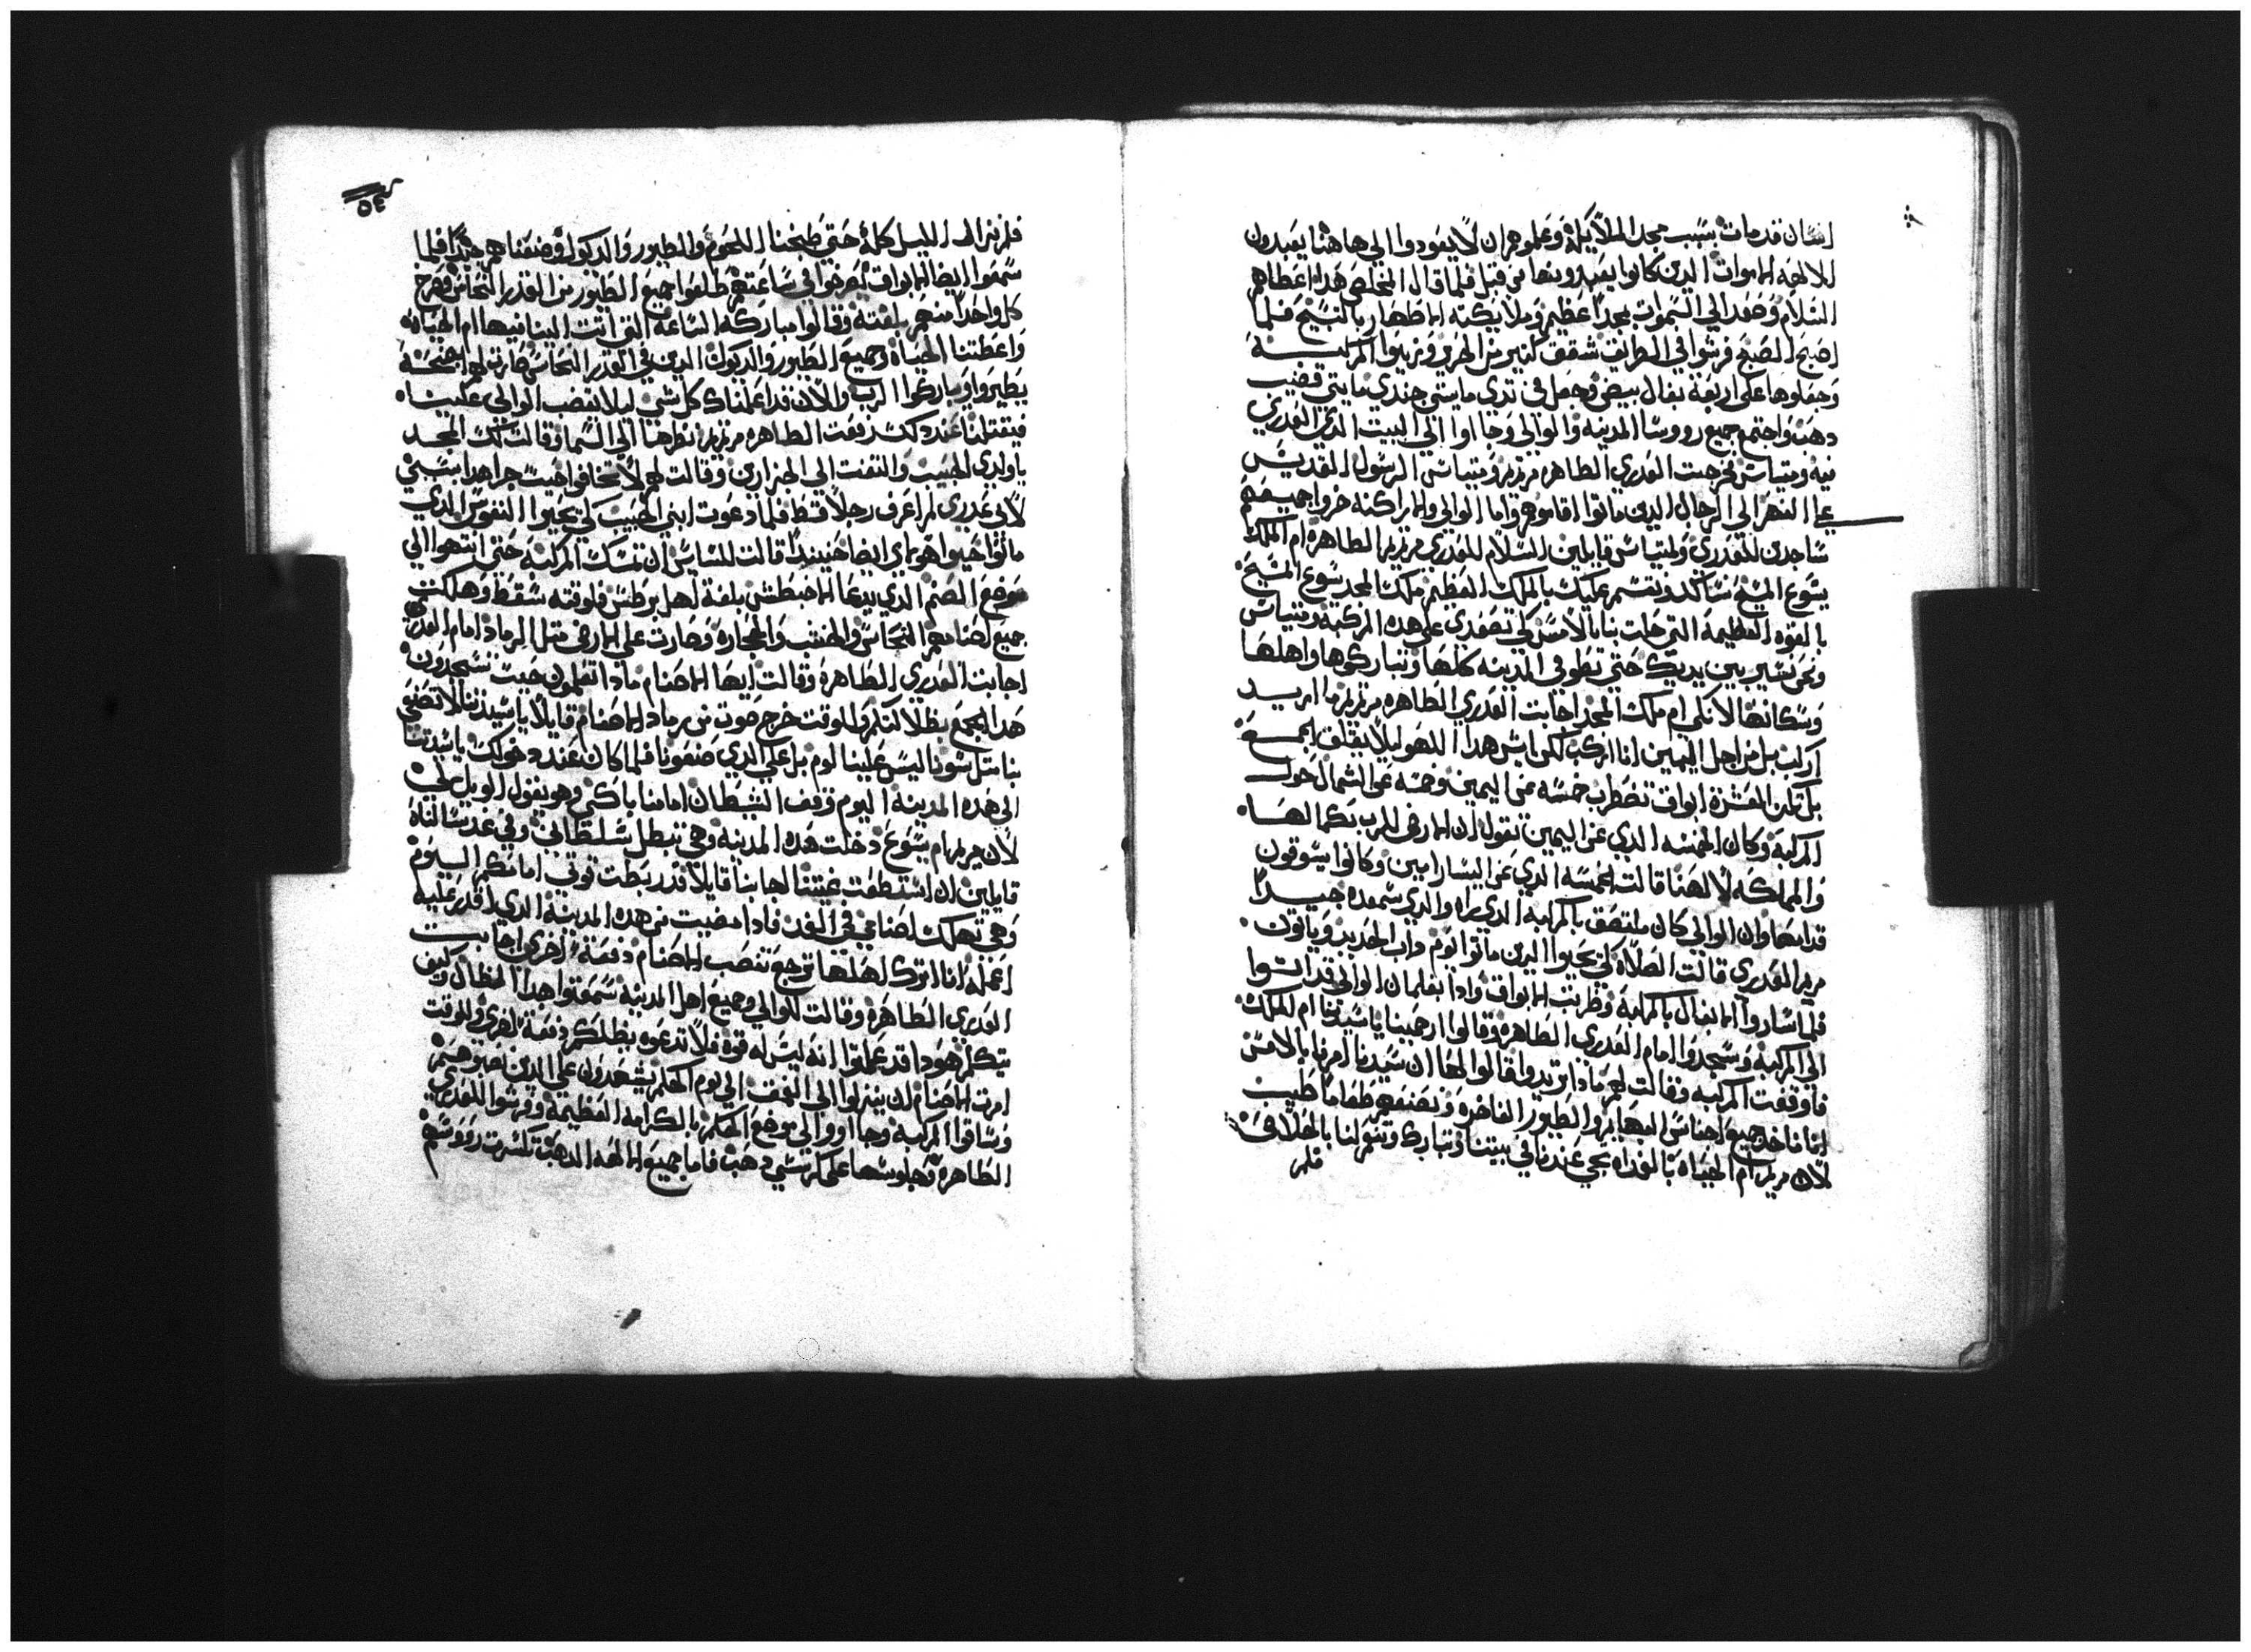 انسان قد مات بسبب مجد الملايكة وعلموهم ان لا يعودوا الي هاهنا يعبدون
للالهه الاموات الدين كانوا يعبدونها من قبل فلما قال المخلص هدا اعطاهم
السلام وصعد الي السموات بمجدًا عظيم وملايكته الاطهار بالتسبيح فلما
اصبح الصبح فرشوا في الطرايق شقف كتير من الحرير وزينوا المركبة
وحملوها على اربعة بغال بيض وحمل في تدي مايتي جندي مايتي قضيب
دهب واجتمع جميع رووسا المدينه والوالي وجااوا الي البيت الدي العدري
فيه ومتياس فخرجت العدري الطاهره مريم ومتياس الرسول القديس
علي النهر الي الرجال الدين ماتوا اقاموهم واما الوالي والاراكنه خروا جميعهم
ساجدين للعدري ولمتياس قايلين السلام للعدري مريم الطاهره ام الملك
يسوع المسيح نسالك ونقسم عليك بالملك العظيم ملك المجد يسوع المسيح
بالقوه العظيمة التي حلت بنا بالامس لكي تصعدي علي هده المركبة ومتياس
ونحن نسير بين يديك حتي تطوفي المدينه كلها وتباركوها واهلها
وسكانها لانكي ام ملك المجد اجابت العدري الطاهره مريم ما اريد
اركب بل من اجل اليمين انا اركب لكن ايش هدا اللهو ليلا يقلق الجمع
بل تكن العشرة ابواق تضطرب خمسه عن اليمين وخمسه عن الشمال حول
المركبة وكان الخمسه الدي عن اليمين تقول ان الارض للرب بكمالها
والمملكه لالهنا قالت الخمسه الدي عن اليسار امين وكانوا يسوقون
قدامها وان الوالي كان ملتصق بالمركبة الدي يراه والدي يسمعه جيدا
مريم العدري قالت الصلاه لكي يحيوا الدين ماتوا يوم داب الحديد وياتون
فلما ساروا البغال بالمركبة وضربت الابواق وادا بغلمان الوالي قد اتوا
الي المركبة وسجدوا امام العدري الطاهره وقالوا ارحمينا يا سيدتنا ام الملك
فاوقفت المركبه وقالت لهم مادا تريدوا قالوا لها ان سيدنا امرنا بالامس
اننا ناخد جميع اجناس البهايم والطيور الفاخره ونصنعهم طعاما طيب
لان مريم ام الحياه بالغداه تجي عندنا في بيتنا وتبارك وتنعم لنا بالخلاص
فلم
٥٤
فلم نزال الليل كله حتي طبخنا اللحوم والطيور والديوك وصنعناهم جيدًا فلما
سمعوا ايضا الابواق تصرخوا في ساعتهم طلعوا جميع الطيور من القدر النحاس وصرخ
كل واحدًا منهم بلغته وقالوا مباركه الساعة التي اتت الينا فيها ام الحياه
واعطتنا الحياه وجميع الطيور والديوك الدين في القدر النحاس صارت لهم اجنحة
يطيروا ويباركوا الرب والان قد اعلمناك كل شي ليلا يغضب الوالي علينا
فيقتلنا عند دلك رفعت الطاهره مريم نظرها الي السما وقالت لك المجد
يا ولدي الحبيب والتفتت الي الجزارين وقالت لهم لا تخافوا حيت جرا هدا بسببي
لاني عدري لم اعرف رجلًا قط فلما دعوت ابني الحبيب لكي يحيوا النفوس الدي
ماتوا حيوا هولاي ايضا حينيدًا قالت للسايس ان تمسك المركبه حتي انتهوا الي
موضع الصنم الدي يدعا الاخبطش بلغة اهل برطس فلوقته سقط وهلكت
جميع اصنامهم النحاس والخشب والحجاره وصارت علي الارض متل الرماد امام العدري
اجابت العدري الطاهرة وقالت ايها الاصنام مادا تعلمون حيت تسجدون
هدا الجمع بظلالتكم وللوقت خرج صوت من رماد الاصنام قايلًا يا سيدتنا لا تصنعي
بنا متل شونا ليس علينا لوم بل علي الدي صنعونا فلما كان عند دخولك يا سيدتنا
الي هده المدينة اليوم وقف الشيطان امامنا باكي وهو يقول الويل لي
لان مريم ام يسوع دخلت هده المدينه وهي تبطل سلطاني وفي غد سالناه
قايلين ان استطعت غيتنا اجابنا قايلًا قد ربطت قوتي امامكم اليوم
وهي تهلك اصنامي في الغد فادا مضيت من هده المدينة الدي اقدر عليه
اعمله انا اترك اهلها ترجع تنصب الاصنام دفعة اخري اجابت
العدري الطاهره وقالت للوالي وجميع اهل المدينة سمعتوا هدا الظال وكيف
يتكلم هودا قد علمتوا انه ليس له قوة فلا تدعوه يظلكم دفعة اخري وللوقت
امرت الاصنام ان ينزلوا الي العمق الي يوم الحكم يشهدون علي الدين نصبوهم
وساقوا المركبة وجااووا الي موضع الحكم بالكرامه العظيمة وفرشوا للعدري
الطاهره وجلوسها علي كرسي دهب فاما جميع الالهه الدهب تكسرت رووسهم